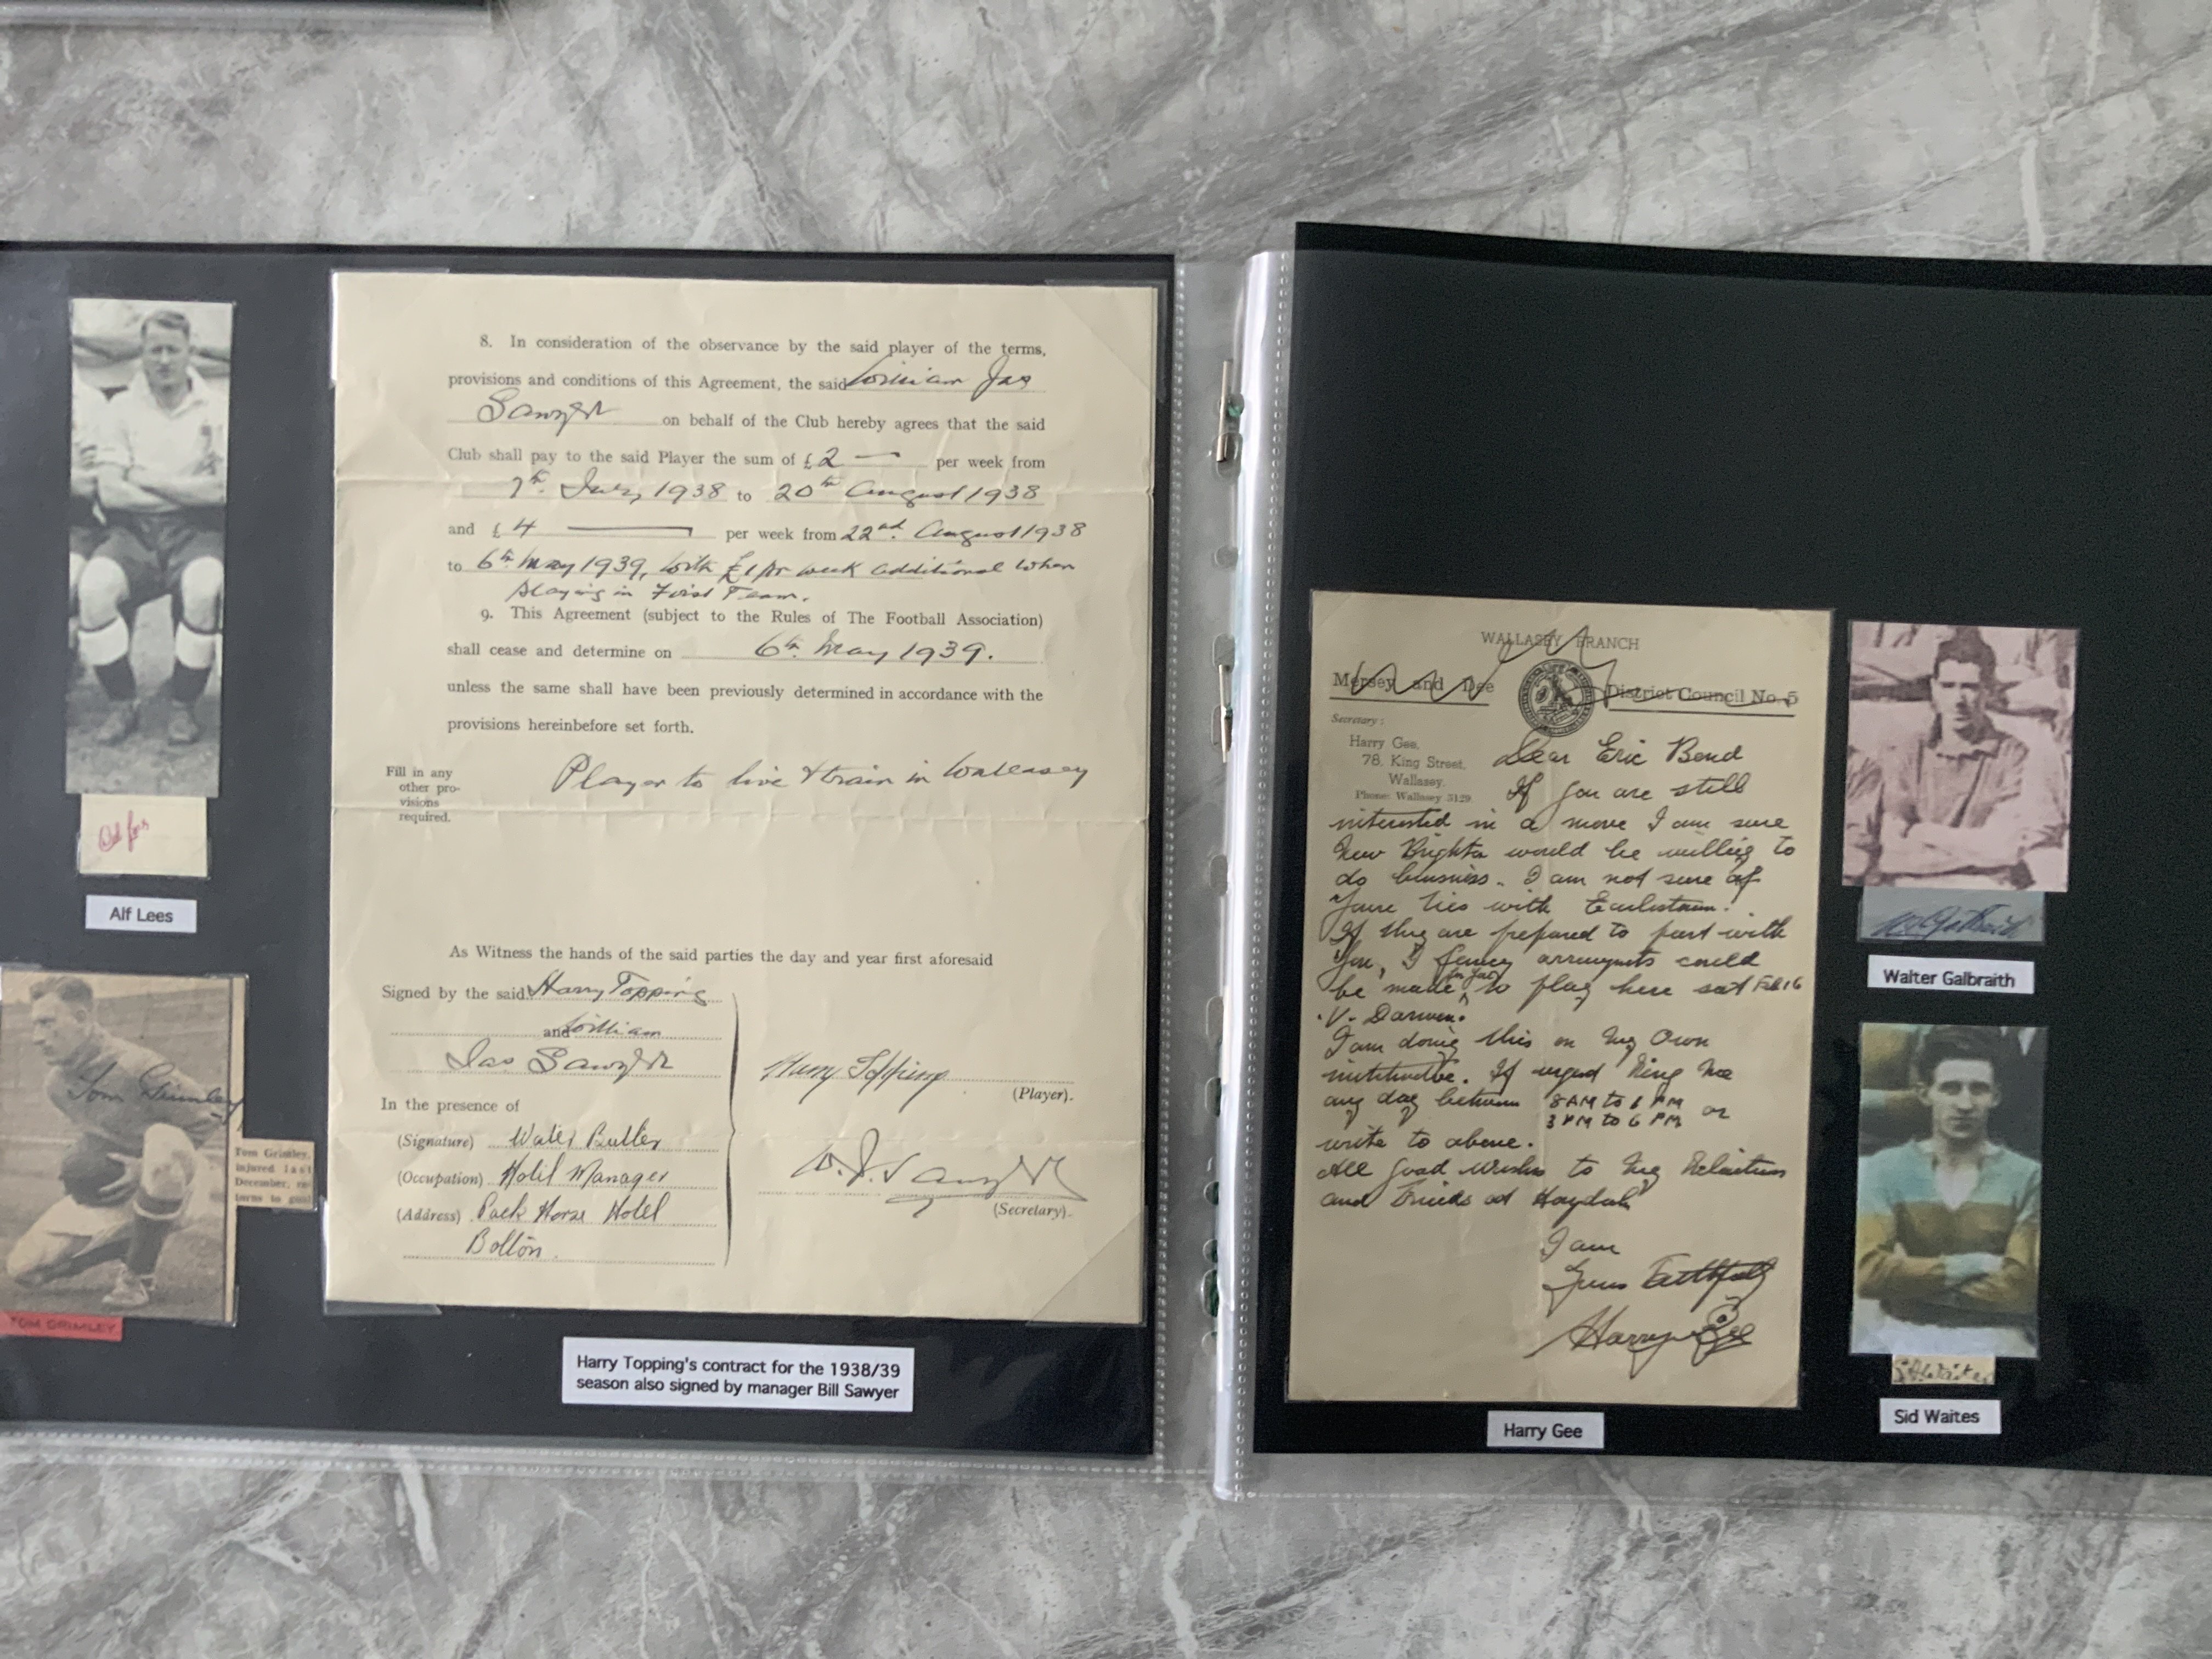 8. In consideration of the observance by the said player of the terms,
provisions and conditions of this Agreement, the said William Jas
Sawyer on behalf of the Club hereby agrees that the said
Club shall pay to the said Player the sum of £2 — per week from
7th. July, 1938 to 20th August 1938
and £4 — per week from 22nd. August 1938
to 6th May 1939, with £1 pr week additional when
playing in First Team.
9. This Agreement (subject to the Rules of The Football Association)
shall cease and determine on 6th. May 1939.
unless the same shall have been previously determined in accordance with the
provisions hereinbefore set forth.
Fill in any
other pro-
visions
required.
Player to live & train in Wallasey
As Witness the hands of the said parties the day and year first aforesaid
Signed by the said Harry Topping
and William
Jas Sawyer
In the presence of
(Signature) Walter Butler
(Occupation) Hotel Manager
(Address) Pack Horse Hotel
Bolton.
Harry Topping
(Player).
W. J. Sawyer
(Secretary).
Alf Lees
Alf Lees
Tom Grimley
Tom Grimley,
injured last
December, re-
turns to goal
TOM GRIMLEY
Harry Topping's contract for the 1938/39
season also signed by manager Bill Sawyer
WALLASEY BRANCH
Mersey and Dee District Council No. 5
Secretary:
Harry Gee,
78, King Street,
Wallasey.
Phone: Wallasey 3129
Dear Eric Bond
If you are still
interested in a move I am sure
New Brighton would be willing to
do business. I am not sure of
your ties with Earlestown.
If they are prepared to part with
you, I fancy arrangements could
be made for you to play here sat Feb 16
V. Darwen.
I am doing this on my own
initiative. If urgent Ring me
any day between 8 AM to 1 PM
3 PM to 6 PM or
write to above.
All good wishes to my Relations
and Friends at Haydock
I am
Yours Faithfully
Harry Gee
Harry Gee
W Galbraith
Walter Galbraith
S Waites
Sid Waites